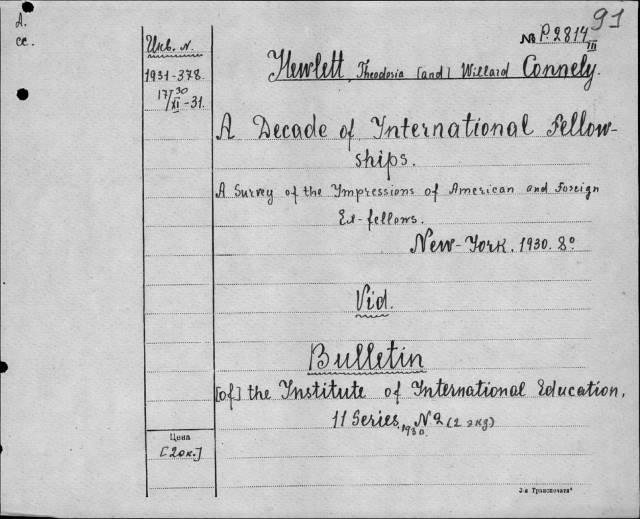 91
A.
cc.
№ P.2814
III
Инв. N.
1931-378.
17/30 XI -31.
Hewlett, Theodosia [and] Willard Connely.
A Decade of International Fellow-
ships.
A Survey of the Impressions of American and Foreign
Ex-fellows.
New-York. 1930. 8°
Vid.
Bulletin
[of] the Institute of International Education.
11 Series, 1930. N 2 (2 экз)
Цена
[20к.]
3-я Транспечать"